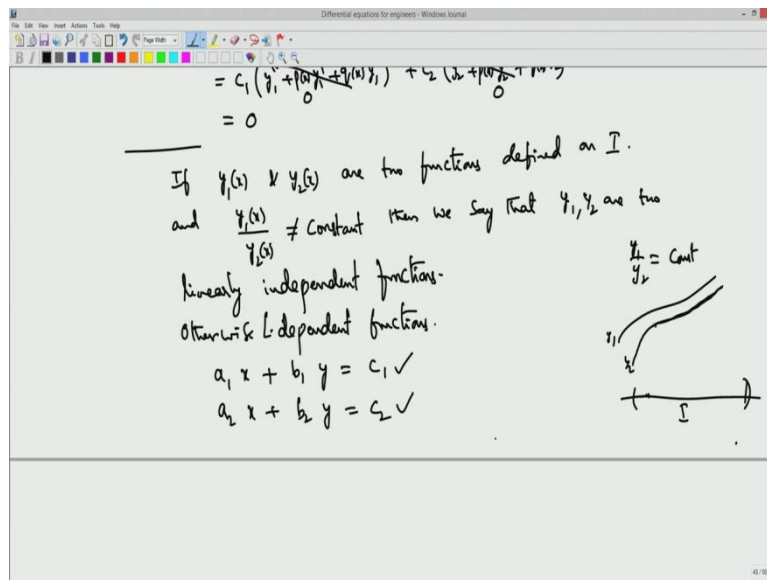 Differential equations for engineers - Windows Journal
File Edit View Insert Actions Tools Help
Page Width
B I
= C₁ (y₁'' + p(x)y₁' + q(x)y₁) + C₂ (y₂'' + p(x)y₂' +
0 0
= 0
If y₁(x) & y₂(x) are two functions defined on I.
and y₁(x)/y₂(x) ≠ Constant then we say that y₁, y₂ are two
linearly independent functions.
Otherwise L. dependent functions.
y₁/y₂ = Const
y₁
y₂
I
a₁ x + b₁ y = C₁ ✓
a₂ x + b₂ y = C₂ ✓
43 / 50